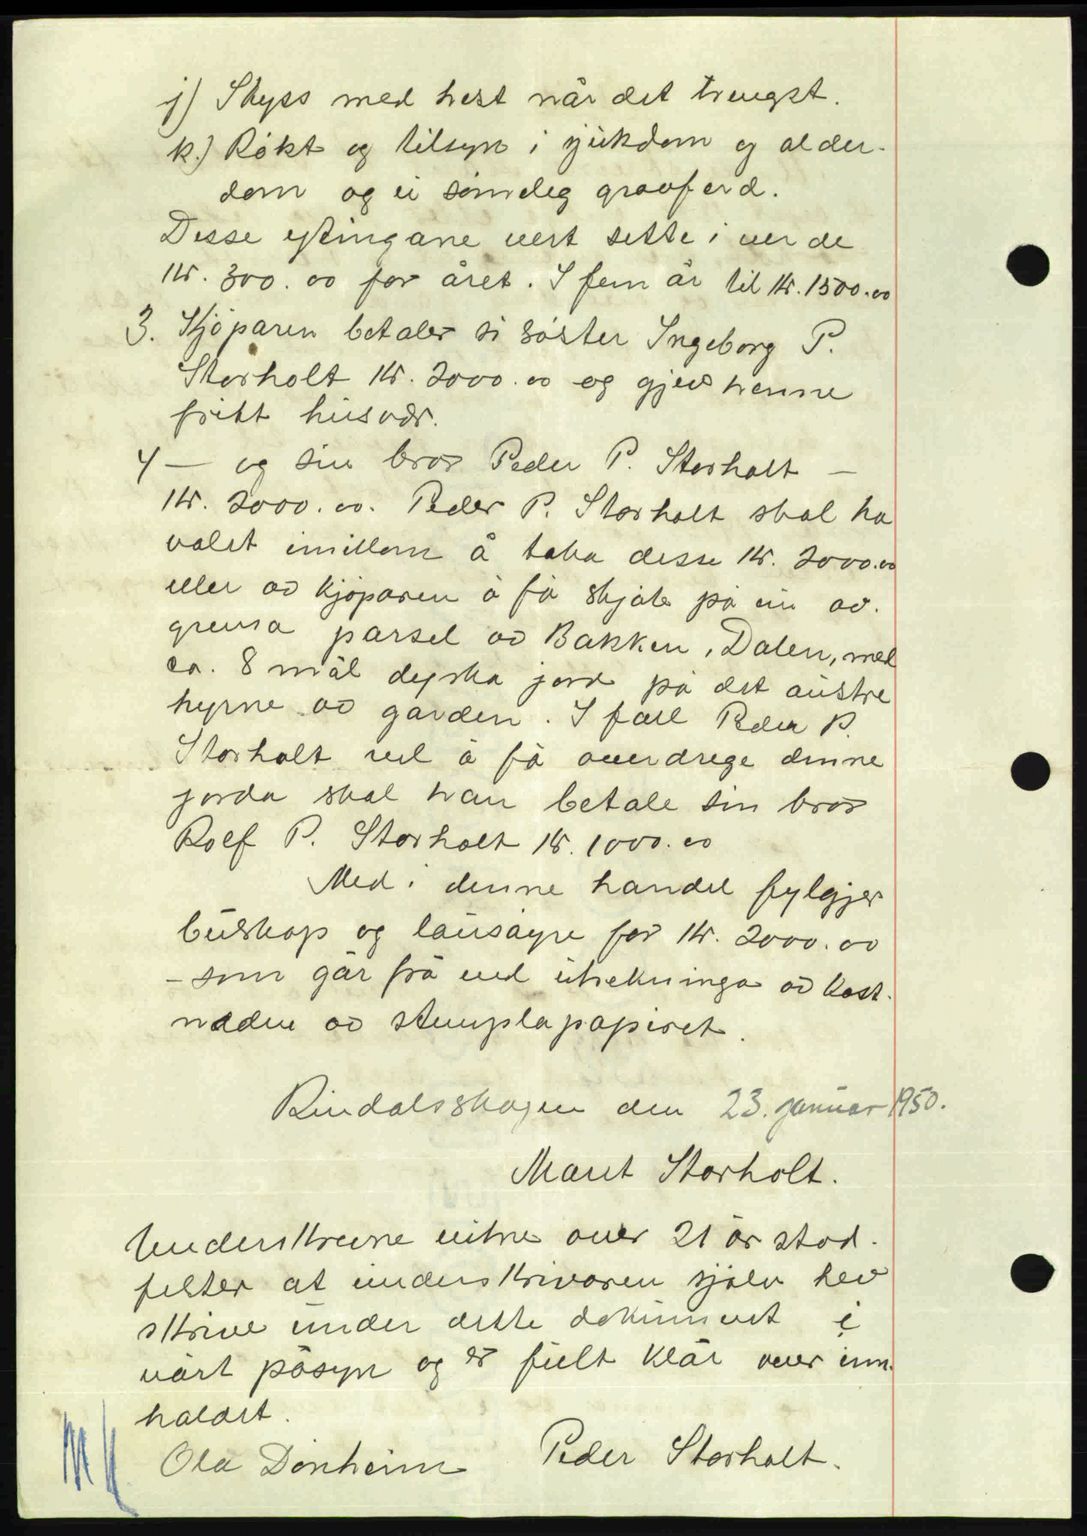 j) Skyss med hest når det trengst.
k.) Røkt og tilsyn i sjukdom og alder-
dom og ei sømeleg gravferd.
Desse ytingane vert sette i verde
kr. 300.00 for året. I fem år til kr. 1500.00
3. Kjøparen betaler si søster Ingeborg P.
Storholt kr. 2000.00 og gjev henne
fritt husvær.
4 — og sin bror Peder P. Storholt —
kr. 2000.00. Peder P. Storholt skal ha
valet imillom å taka desse kr. 2000.00
eller av kjøparen å få skjøte på ein av-
grensa parsel av Bakken, Dalen, med
ca. 8 mål dyrka jord på det austre
hyrne av garden. I fall Peder P.
Storholt vel å få overdrege denne
jorda skal han betale sin bror
Rolf P. Storholt kr. 1000.00
Med i denne handel fylgjer
buskap og lausøyre for kr. 2000.00
- som går frå ved utrekninga av kost-
naden av stempla papiret.
Rindalsskogen den 23. januar 1950.
Marit Storholt.
Underskrevne vitne over 21 år stad-
fester at underskrivaren sjølv hev
skrive under dette dokument i
vårt påsyn og er fullt klår over inn-
haldet.
Ola Dønheim Peder Storholt.